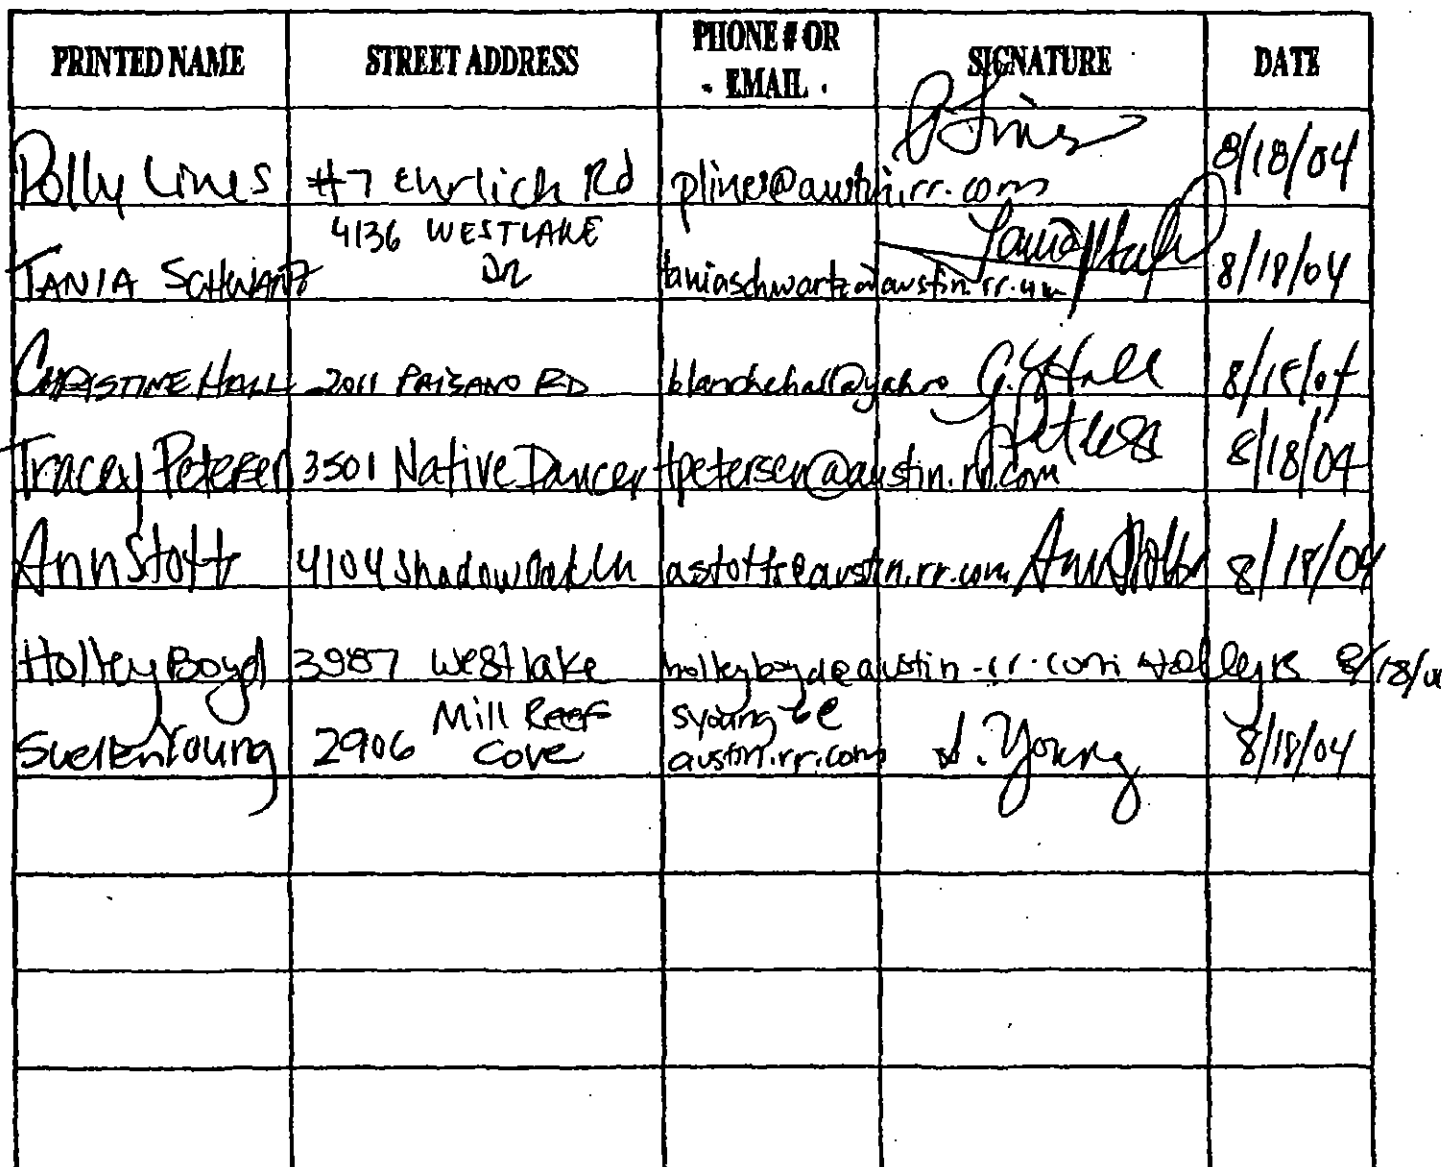 PRINTED NAME STREET ADDRESS PHONE # OR EMAIL SIGNATURE DATE
Polly Lines #7 Ehrlich Rd plines@austin.rr.com P Lines 8/18/04
TANIA SCHWARTZ 4136 WESTLAKE DR taniaschwartz@austin.rr.com 8/18/04
CHRISTINE HALL 2011 PAISANO RD blanchehall@yahoo C. Hall 8/18/04
Tracey Petersen 3501 Native Dancer tpetersen@austin.rr.com 8/18/04
Ann Stotts 4104 Shadow Oak Ln astotts@austin.rr.com Ann Stotts 8/18/04
Holley Boyd 3987 Westlake holleyboyd@austin-rr.com 8/18/04
Suellen Young 2906 Mill Reef Cove syoung6@austin.rr.com S. Young 8/18/04